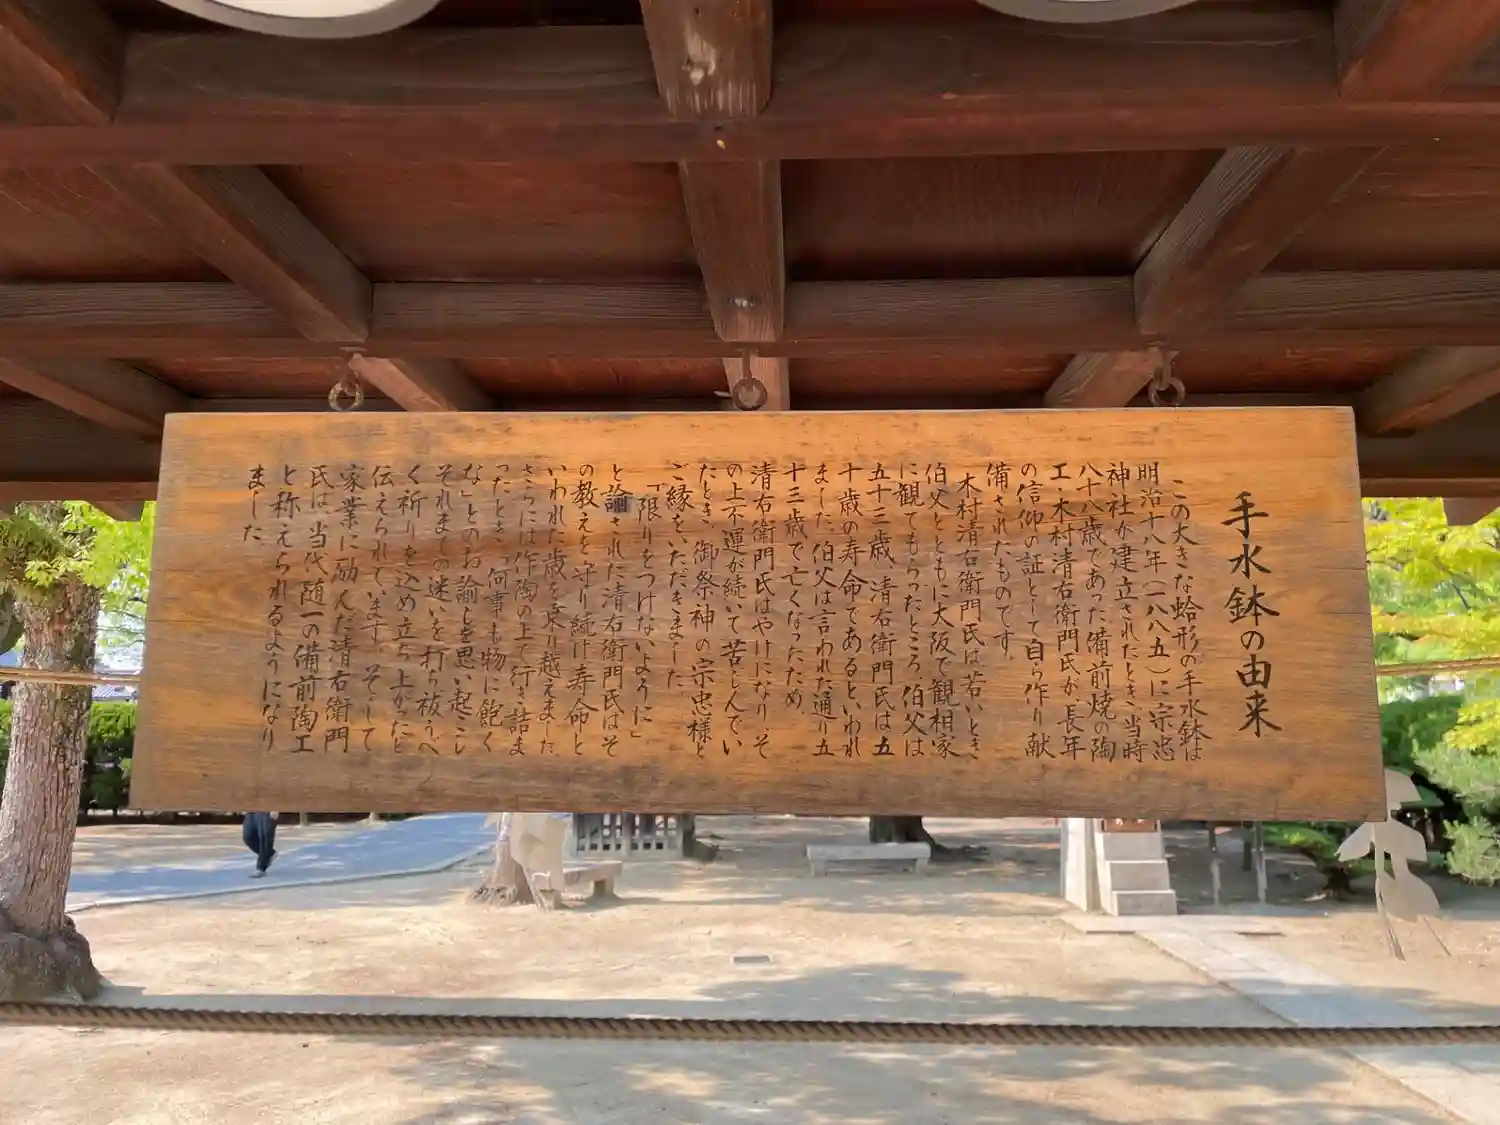 手水鉢の由来
この大きな蛤形の手水鉢は
明治十八年(一八八五)に宗忠
神社が建立されたとき、当時
八十八歳であった備前焼の陶
工・木村清右衛門氏が、長年
の信仰の証として自ら作り献
備されたものです。
木村清右衛門氏は若いとき
伯父とともに大阪で観相家
に観てもらったところ、伯父は
五十三歳、清右衛門氏は五
十歳の寿命であるといわれ
ました。伯父は言われた通り五
十三歳で亡くなったため、
清右衛門氏はやけになり、そ
の上不運が続いて苦しんでい
たとき、御祭神の宗忠様と
ご縁をいただきました。
「限りをつけないように」
と諭された清右衛門氏はそ
の教えを守り続け寿命と
いわれた歳を乗り越えました。
さらには作陶の上で行き詰ま
ったとき、「何事も物に飽く
な」とのお諭しを思い起こし
それまでの迷いを打ち祓うべ
く祈りを込め立ち上がったと
伝えられています。そして
家業に励んだ清右衛門
氏は、当代随一の備前陶工
と称えられるようになり
ました。